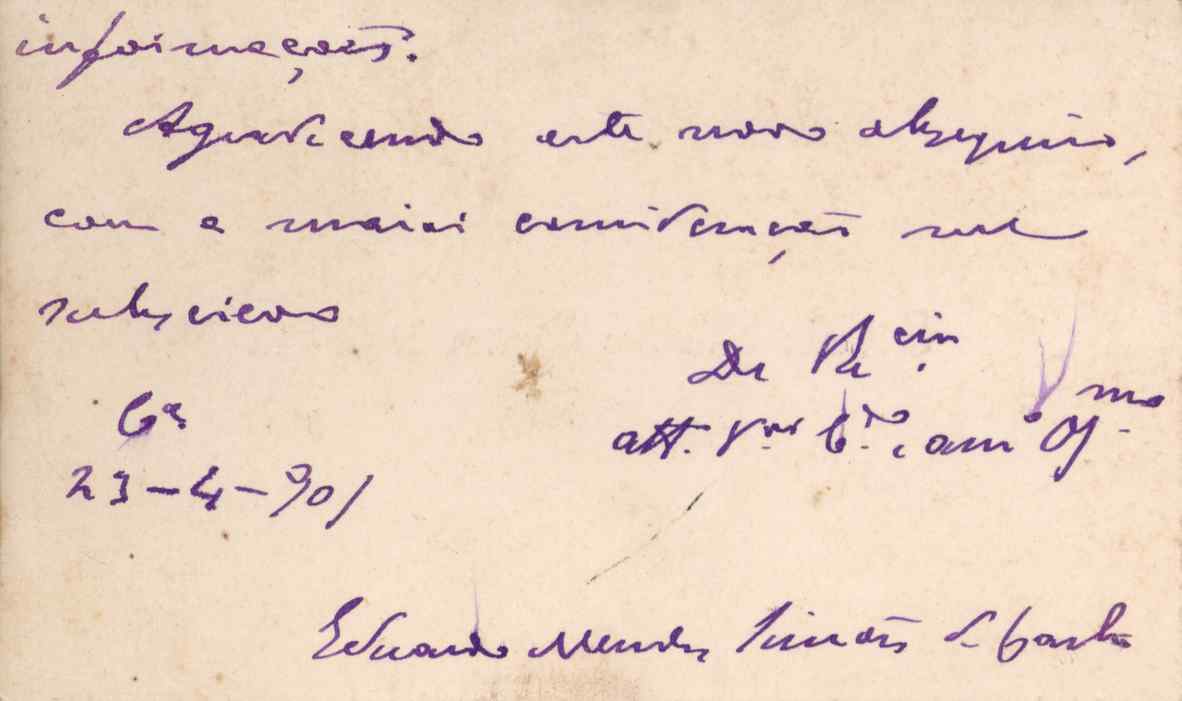 informações.
Agradecendo este novo obsequio,
com a maior consideração me
subscrevo
De V. Ex.cia
att. V.or C.do e am.o Obg.mo
Ca
23-4-901
Eduardo Mendes Simões de Castro